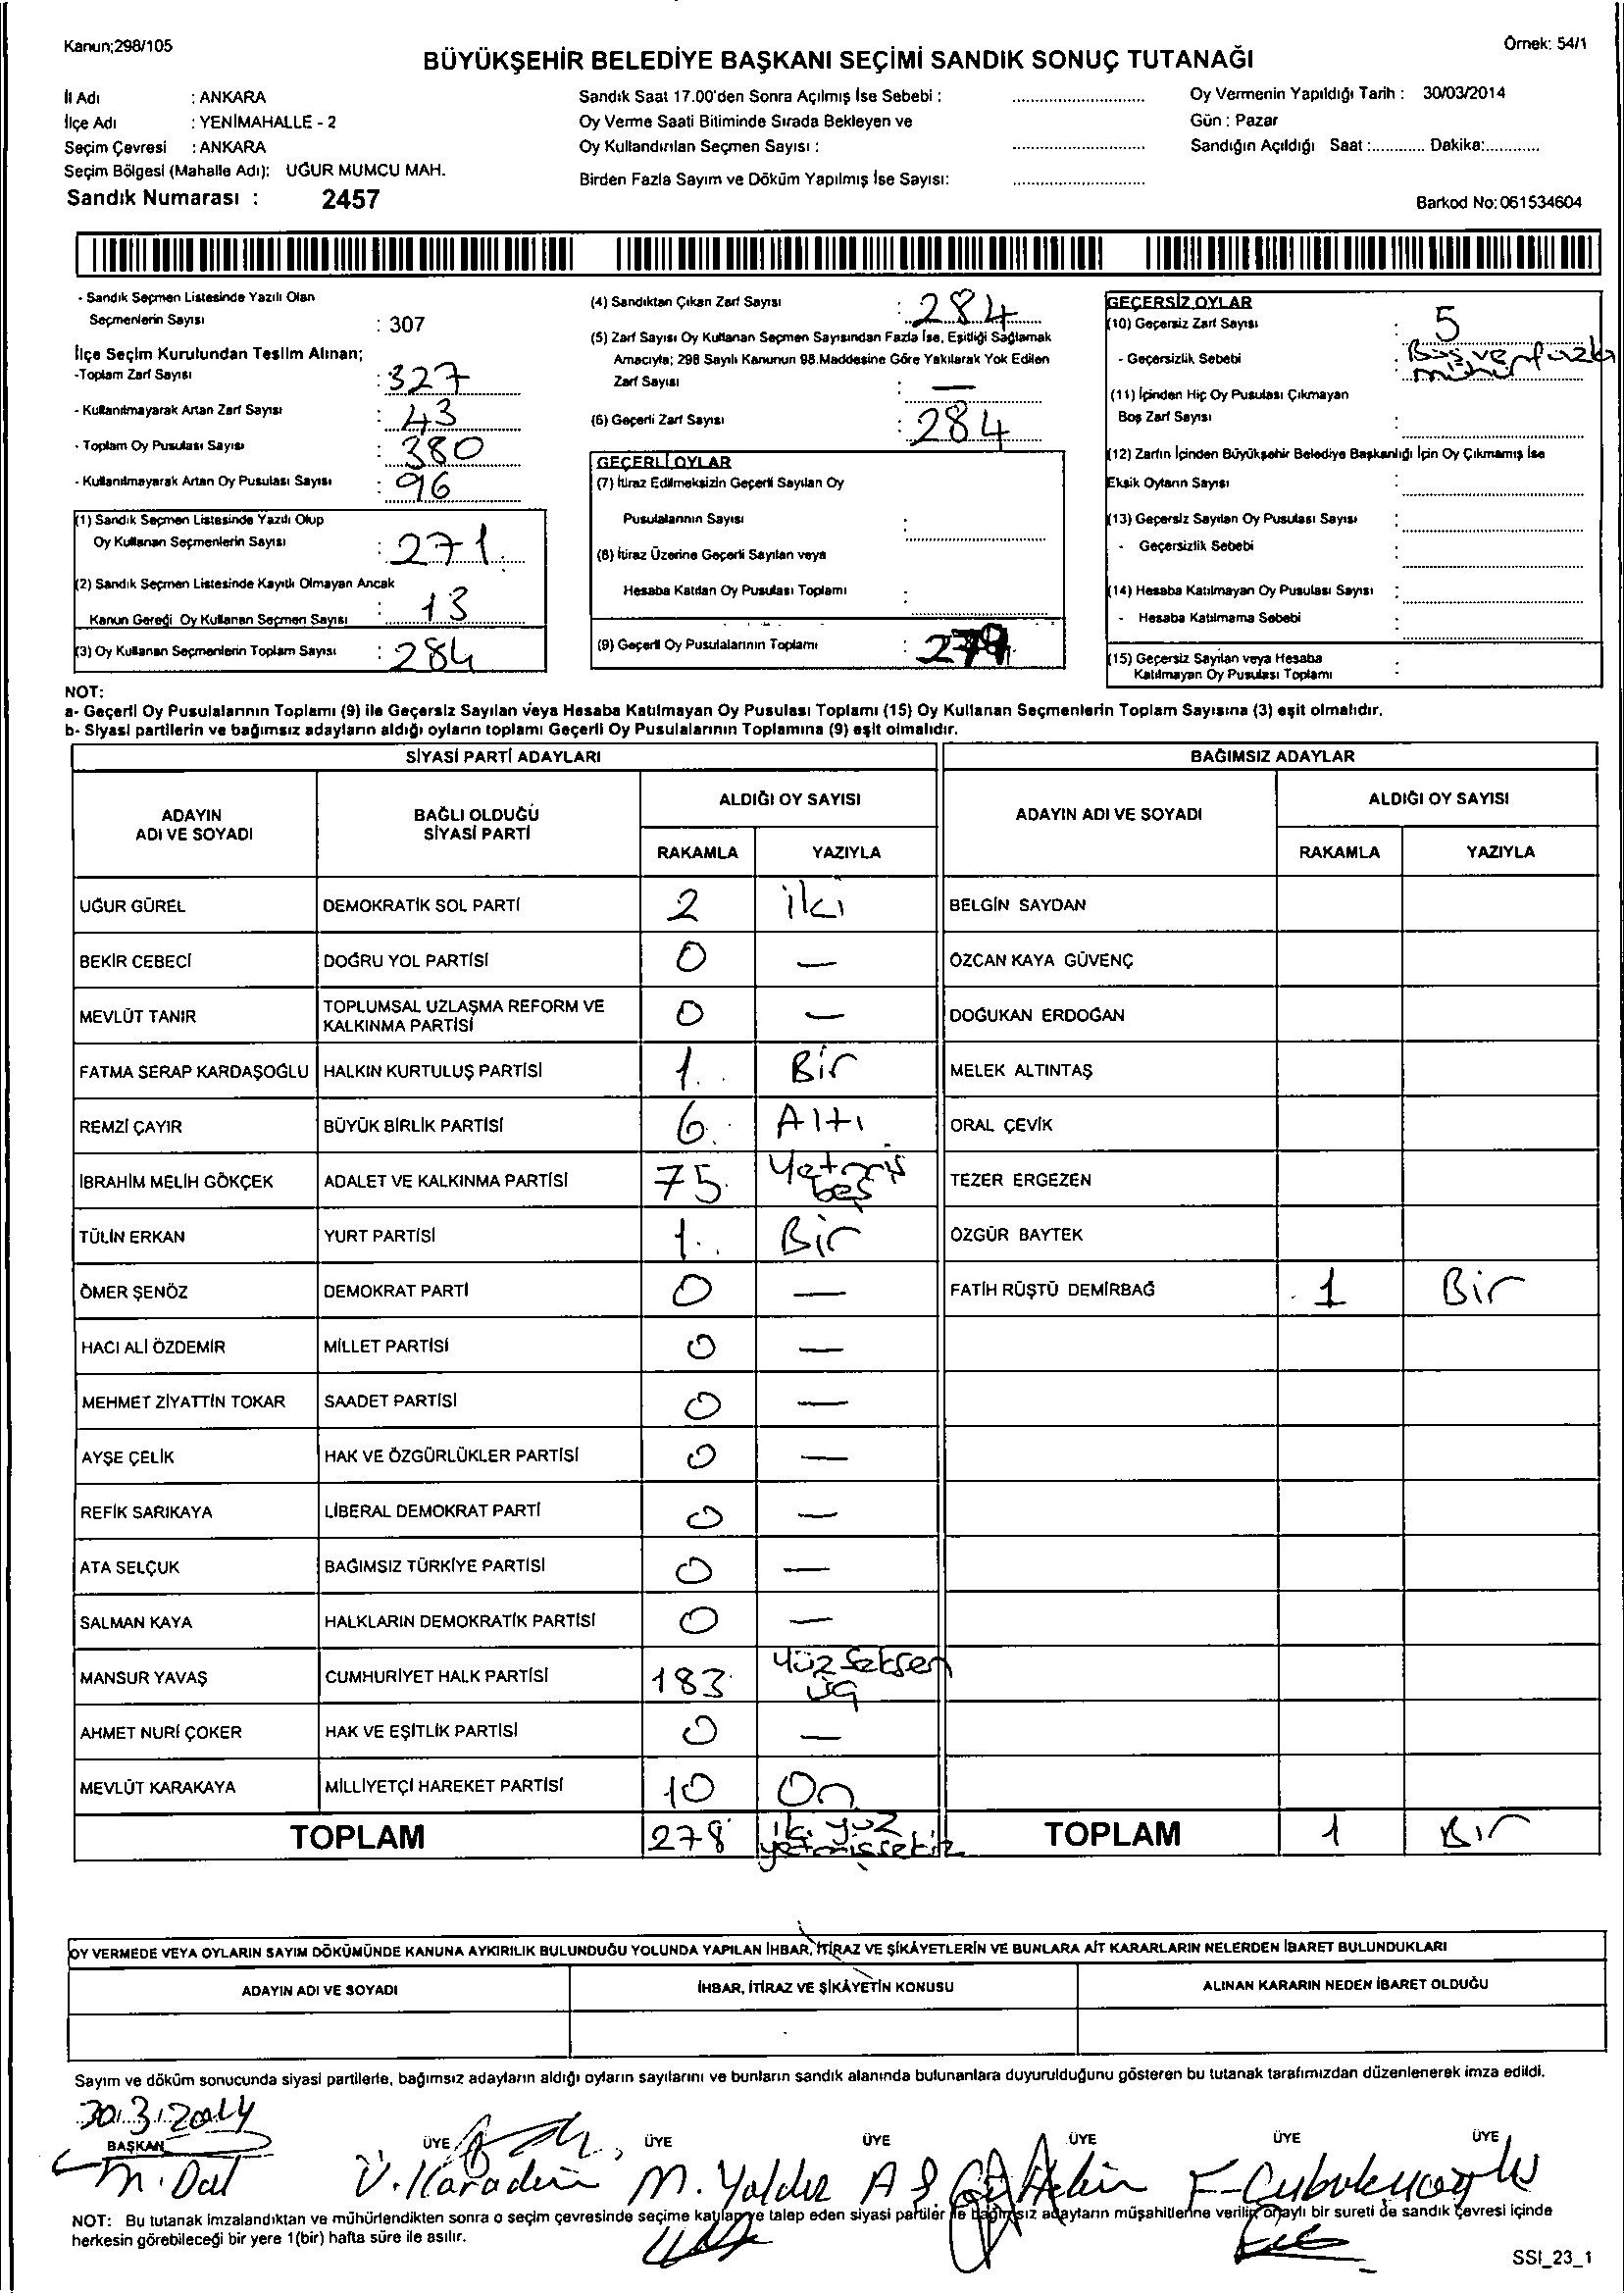 Kanun;298/105
Örnek: 54/1
BÜYÜKŞEHİR BELEDİYE BAŞKANI SEÇİMİ SANDIK SONUÇ TUTANAĞI
İl Adı : ANKARA
İlçe Adı : YENİMAHALLE - 2
Seçim Çevresi : ANKARA
Seçim Bölgesi (Mahalle Adı): UĞUR MUMCU MAH.
Sandık Numarası : 2457
Sandık Saat 17.00'den Sonra Açılmış İse Sebebi :
Oy Verme Saati Bitiminde Sırada Bekleyen ve
Oy Kullandırılan Seçmen Sayısı :
Birden Fazla Sayım ve Döküm Yapılmış İse Sayısı:
Oy Vermenin Yapıldığı Tarih : 30/03/2014
Gün : Pazar
Sandığın Açıldığı Saat :............ Dakika:............
Barkod No:061534604
- Sandık Seçmen Listesinde Yazılı Olan
Seçmenlerin Sayısı : 307
İlçe Seçim Kurulundan Teslim Alınan;
-Toplam Zarf Sayısı : 327
- Kullanılmayarak Artan Zarf Sayısı : 43
- Toplam Oy Pusulası Sayısı : 380
- Kullanılmayarak Artan Oy Pusulası Sayısı : 96
(1) Sandık Seçmen Listesinde Yazılı Olup
Oy Kullanan Seçmenlerin Sayısı : 271
(2) Sandık Seçmen Listesinde Kayıtlı Olmayan Ancak
Kanun Gereği Oy Kullanan Seçmen Sayısı : 13
(3) Oy Kullanan Seçmenlerin Toplam Sayısı : 284
(4) Sandıktan Çıkan Zarf Sayısı : 284
(5) Zarf Sayısı Oy Kullanan Seçmen Sayısından Fazla İse, Eşitliği Sağlamak
Amacıyla; 298 Sayılı Kanunun 98.Maddesine Göre Yakılarak Yok Edilen
Zarf Sayısı : —
(6) Geçerli Zarf Sayısı : 284
GEÇERLİ OYLAR
(7) İtiraz Edilmeksizin Geçerli Sayılan Oy
Pusulalarının Sayısı :
(8) İtiraz Üzerine Geçerli Sayılan veya
Hesaba Katılan Oy Pusulası Toplamı :
(9) Geçerli Oy Pusulalarının Toplamı : 279
GEÇERSİZ OYLAR
(10) Geçersiz Zarf Sayısı : 5
- Geçersizlik Sebebi : Boş ve fazla
mühür
(11) İçinden Hiç Oy Pusulası Çıkmayan
Boş Zarf Sayısı :
(12) Zarfın İçinden Büyükşehir Belediye Başkanlığı İçin Oy Çıkmamış İse
Eksik Oyların Sayısı :
(13) Geçersiz Sayılan Oy Pusulası Sayısı :
- Geçersizlik Sebebi :
(14) Hesaba Katılmayan Oy Pusulası Sayısı :
- Hesaba Katılmama Sebebi :
(15) Geçersiz Sayılan veya Hesaba
Katılmayan Oy Pusulası Toplamı :
NOT:
a- Geçerli Oy Pusulalarının Toplamı (9) ile Geçersiz Sayılan veya Hesaba Katılmayan Oy Pusulası Toplamı (15) Oy Kullanan Seçmenlerin Toplam Sayısına (3) eşit olmalıdır.
b- Siyasi partilerin ve bağımsız adayların aldığı oyların toplamı Geçerli Oy Pusulalarının Toplamına (9) eşit olmalıdır.
SİYASİ PARTİ ADAYLARI BAĞIMSIZ ADAYLAR
ADAYIN ADI VE SOYADI BAĞLI OLDUĞU SİYASİ PARTİ ALDIĞI OY SAYISI ADAYIN ADI VE SOYADI ALDIĞI OY SAYISI
RAKAMLA YAZIYLA RAKAMLA YAZIYLA
UĞUR GÜREL DEMOKRATİK SOL PARTİ 2 iki BELGİN SAYDAN
BEKİR CEBECİ DOĞRU YOL PARTİSİ 0 — ÖZCAN KAYA GÜVENÇ
MEVLÜT TANIR TOPLUMSAL UZLAŞMA REFORM VE KALKINMA PARTİSİ 0 — DOĞUKAN ERDOĞAN
FATMA SERAP KARDAŞOĞLU HALKIN KURTULUŞ PARTİSİ 1 Bir MELEK ALTINTAŞ
REMZİ ÇAYIR BÜYÜK BİRLİK PARTİSİ 6 Altı ORAL ÇEVİK
İBRAHİM MELİH GÖKÇEK ADALET VE KALKINMA PARTİSİ 75 Yetmiş beş TEZER ERGEZEN
TÜLİN ERKAN YURT PARTİSİ 1 Bir ÖZGÜR BAYTEK
ÖMER ŞENÖZ DEMOKRAT PARTİ 0 — FATİH RÜŞTÜ DEMİRBAĞ 1 Bir
HACI ALİ ÖZDEMİR MİLLET PARTİSİ 0 —
MEHMET ZİYATTİN TOKAR SAADET PARTİSİ 0 —
AYŞE ÇELİK HAK VE ÖZGÜRLÜKLER PARTİSİ 0 —
REFİK SARIKAYA LİBERAL DEMOKRAT PARTİ 0 —
ATA SELÇUK BAĞIMSIZ TÜRKİYE PARTİSİ 0 —
SALMAN KAYA HALKLARIN DEMOKRATİK PARTİSİ 0 —
MANSUR YAVAŞ CUMHURİYET HALK PARTİSİ 183 Yüz seksen üç
AHMET NURİ ÇOKER HAK VE EŞİTLİK PARTİSİ 0 —
MEVLÜT KARAKAYA MİLLİYETÇİ HAREKET PARTİSİ 10 On
TOPLAM 278 iki yüz yetmişsekiz TOPLAM 1 Bir
OY VERMEDE VEYA OYLARIN SAYIM DÖKÜMÜNDE KANUNA AYKIRILIK BULUNDUĞU YOLUNDA YAPILAN İHBAR, İTİRAZ VE ŞİKÂYETLERİN VE BUNLARA AİT KARARLARIN NELERDEN İBARET BULUNDUKLARI
ADAYIN ADI VE SOYADI İHBAR, İTİRAZ VE ŞİKÂYETİN KONUSU ALINAN KARARIN NEDEN İBARET OLDUĞU
Sayım ve döküm sonucunda siyasi partilerle, bağımsız adayların aldığı oyların sayılarını ve bunların sandık alanında bulunanlara duyurulduğunu gösteren bu tutanak tarafımızdan düzenlenerek imza edildi.
30.3.2014
BAŞKAN ÜYE ÜYE ÜYE ÜYE ÜYE ÜYE
M. Dal V. Karadeniz M. Yaldız
NOT: Bu tutanak imzalandıktan ve mühürlendikten sonra o seçim çevresinde seçime katılan ve talep eden siyasi partiler ile bağımsız adayların müşahitlerine verilir, onaylı bir sureti de sandık çevresi içinde
herkesin görebileceği bir yere 1(bir) hafta süre ile asılır.
SSI_23_1